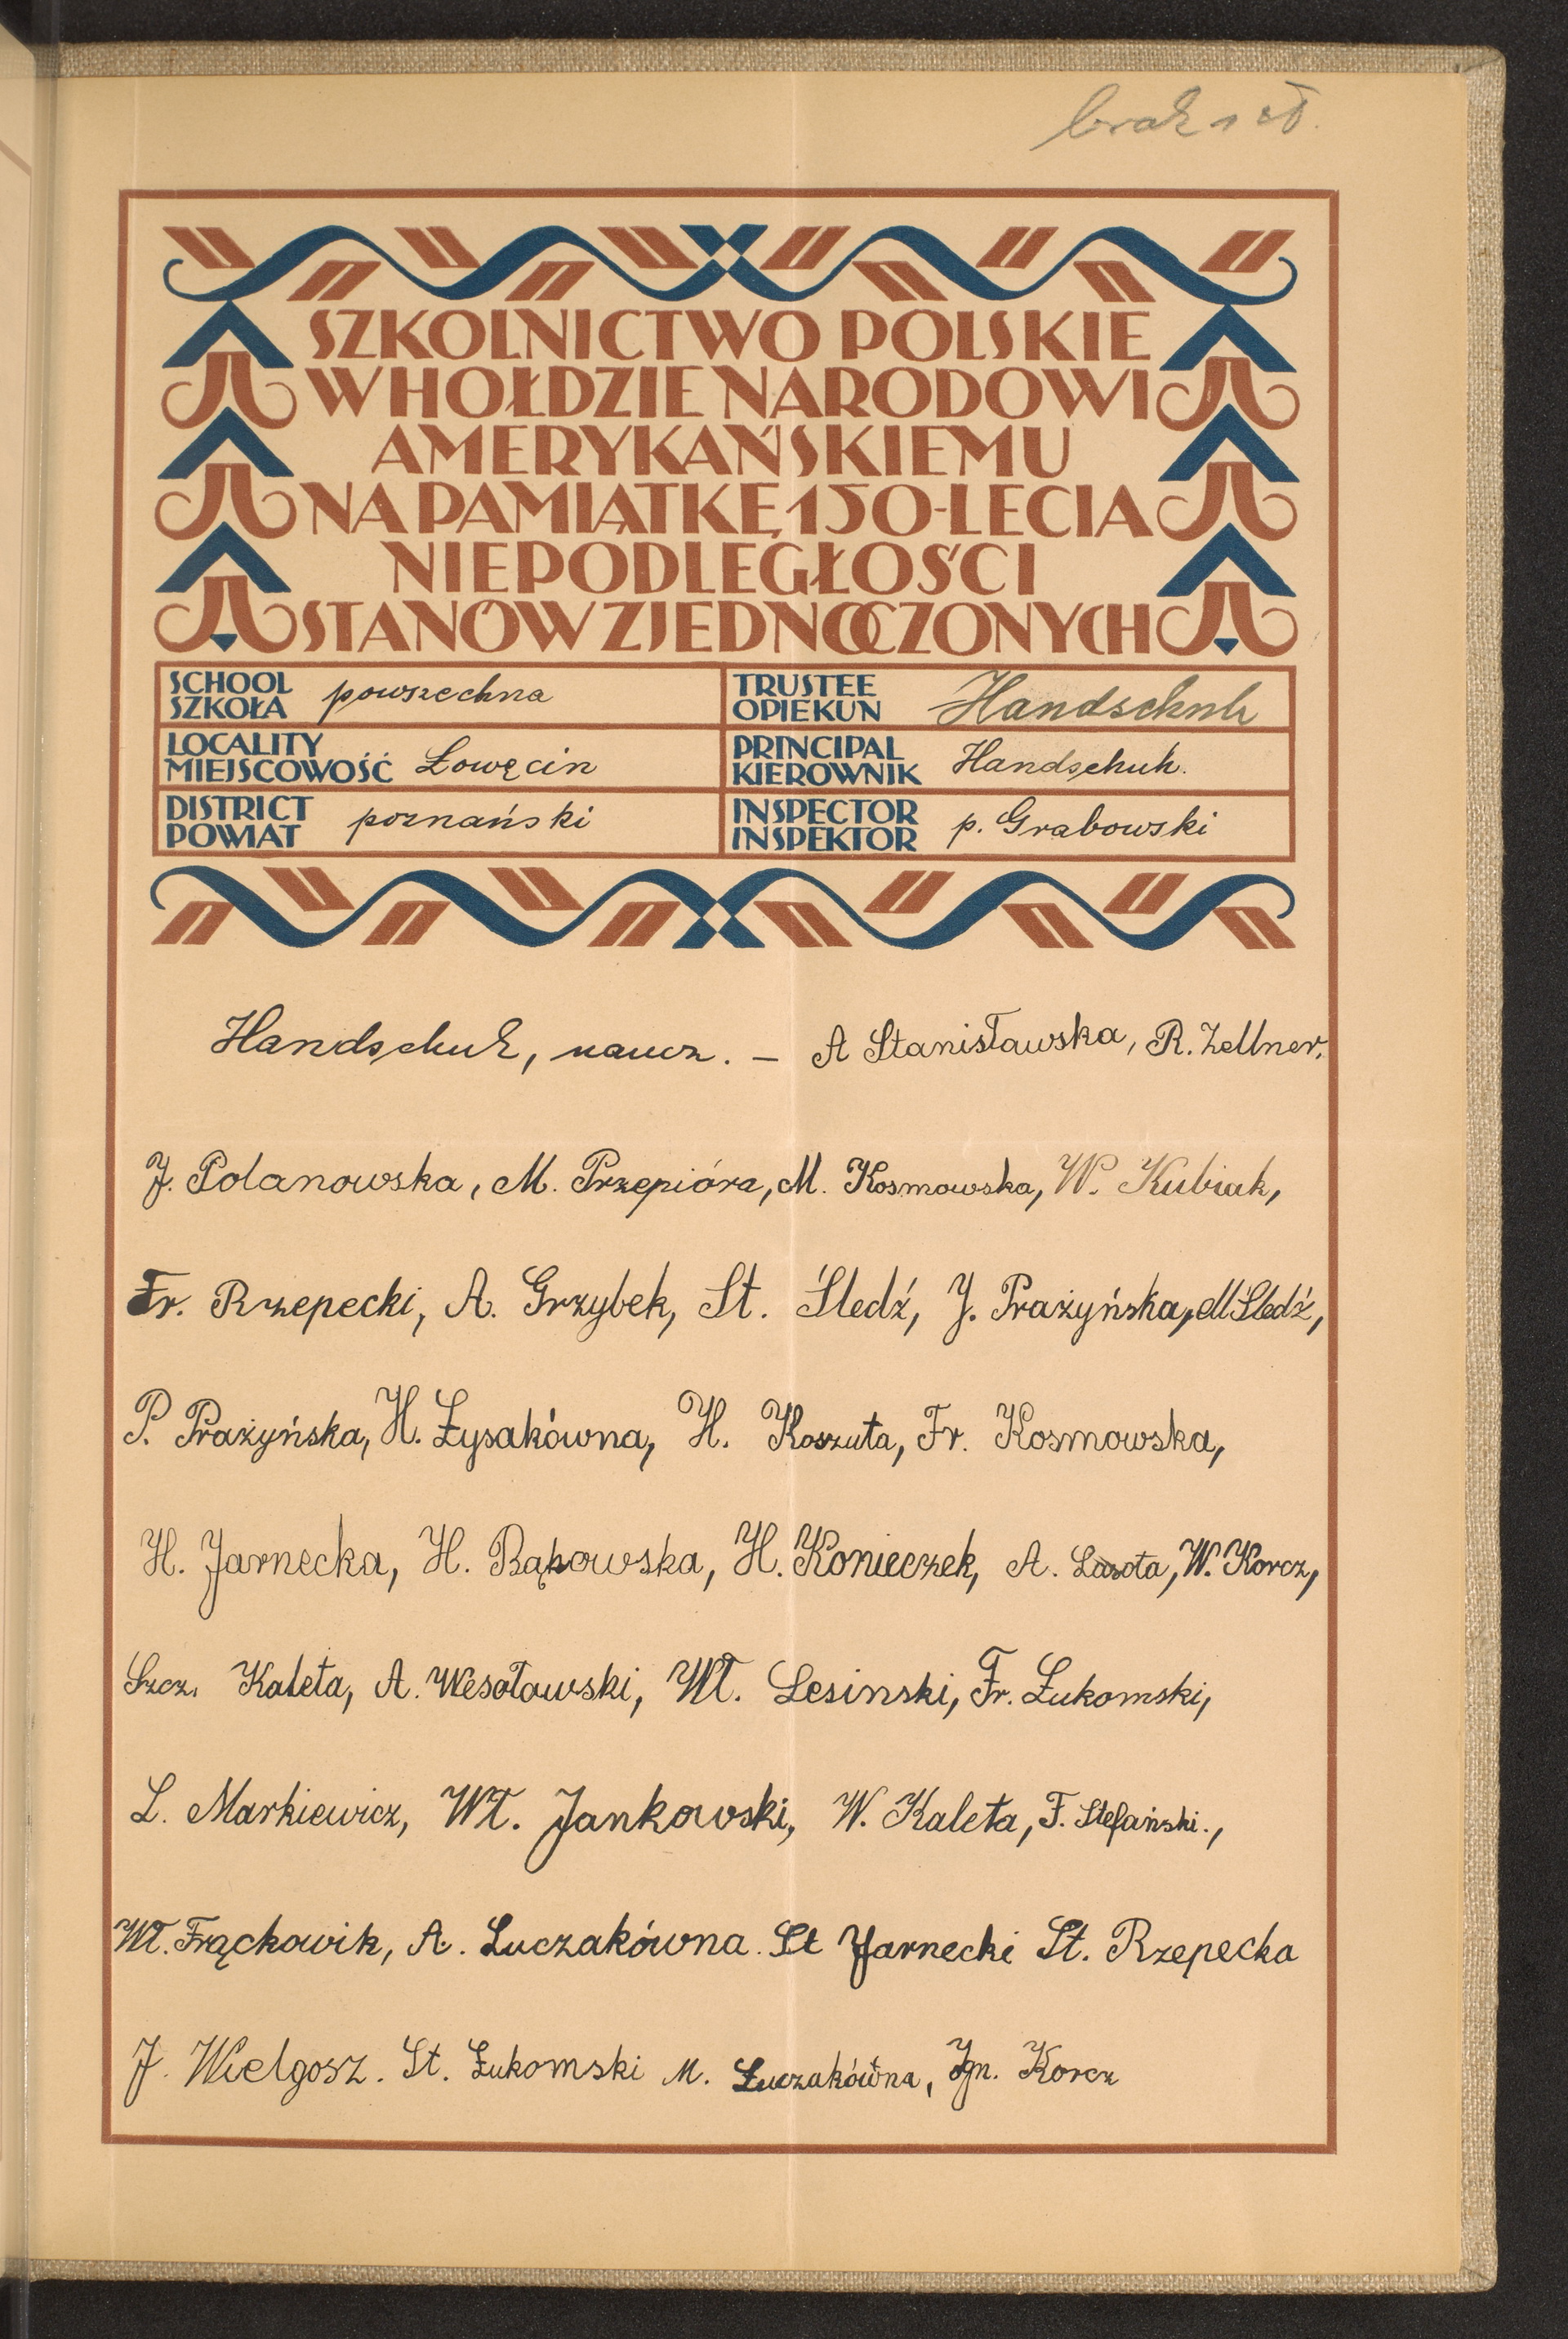 brak 1 zł.
SZKOLNICTWO POLSKIE
W HOŁDZIE NARODOWI
AMERYKAŃSKIEMU
NA PAMIĄTKĘ 150-LECIA
NIEPODLEGŁOŚCI
STANÓW ZJEDNOCZONYCH
SCHOOL
SZKOŁA powszechna
TRUSTEE
OPIEKUN Handschuh
LOCALITY
MIEJSCOWOŚĆ Łowęcin
PRINCIPAL
KIEROWNIK Handschuh.
DISTRICT
POWIAT poznański
INSPECTOR
INSPEKTOR p. Grabowski
Handschuh, naucz. – A Stanisławska, R. Zellner.
J. Polanowska, M. Przepióra, M. Kosmowska, W. Kubiak,
Fr. Rzepecki, A. Grzybek, St. Śledź, J. Prażyńska, M Śledź,
P. Prażyńska, H. Łysakówna, H. Koszuta, Fr. Kosmowska,
H. Jarnecka, H. Bąkowska, H. Konieczek, A. Lasota, W. Korcz,
Szcz. Kaleta, A. Wesołowski, Wł. Lesinski, Fr. Łukomski,
L. Markiewicz, Wł. Jankowski, W. Kaleta, F. Stefański.,
Wł. Frąckowik, A. Luczakówna. St Jarnecki St. Rzepecka
J. Wielgosz. St. Łukomski M. Łuczakówna, Ign. Korcz